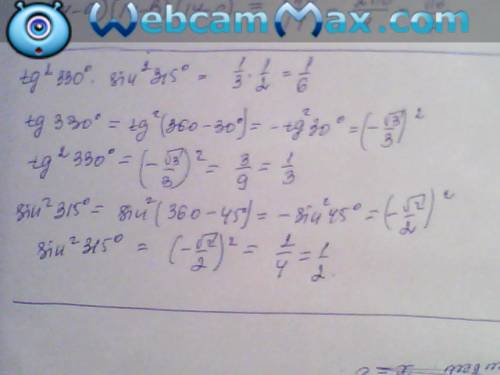 Webcam Max.com
tg² 330° · sin² 315° = 1/3 · 1/2 = 1/6
tg 330° = tg² (360 - 30°) = - tg² 30° = (- √3/3)²
tg² 330° = (- √3/3)² = 3/9 = 1/3
sin² 315° = sin² (360 - 45°) = - sin² 45° = (- √2/2)²
sin² 315° = (- √2/2)² = 2/4 = 1/2